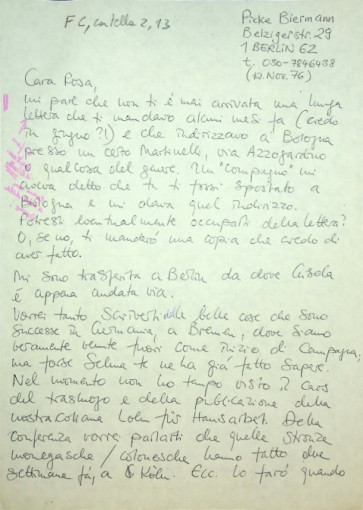 FC, cartella 2, 13
Pieke Biermann
Belzigerstr. 29
1 BERLIN 62
t. 030-7846438
(12. Nov. 76)
Cara Rosa,
mi pare che non ti è mai arrivata una lunga
lettera che ti mandavo alcuni mesi fa (credo
in giugno?!) e che indirizzavo a Bologna
presso un certo Martinelli, via Azzogardino
o qualcosa del genere. Un "compagno" mi
aveva detto che tu ti fossi spostata a
Bologna e mi dava quel indirizzo.
Potresti eventualmente occuparti della lettera?
O, se no, ti manderò una copia che credo di
aver fatto.
Mi sono trasferita a Berlin da dove Gisela
è appena andata via.
Vorrei tanto scriverti delle belle cose che sono
successe in Germania, a Bremen, dove siamo
veramente venute fuori come inizio di Campagna,
ma forse Selma te ne ha già fatto sapere.
Nel momento non ho tempo visto il caos
del trasloco e della pubblicazione della
nostra collana Lohn für Hausarbeit. Della
conferenza vorrei parlarti che quelle stronze
monegasche / colonesche hanno fatto due
settimane fa, a Köln. Ecc. lo farò quando